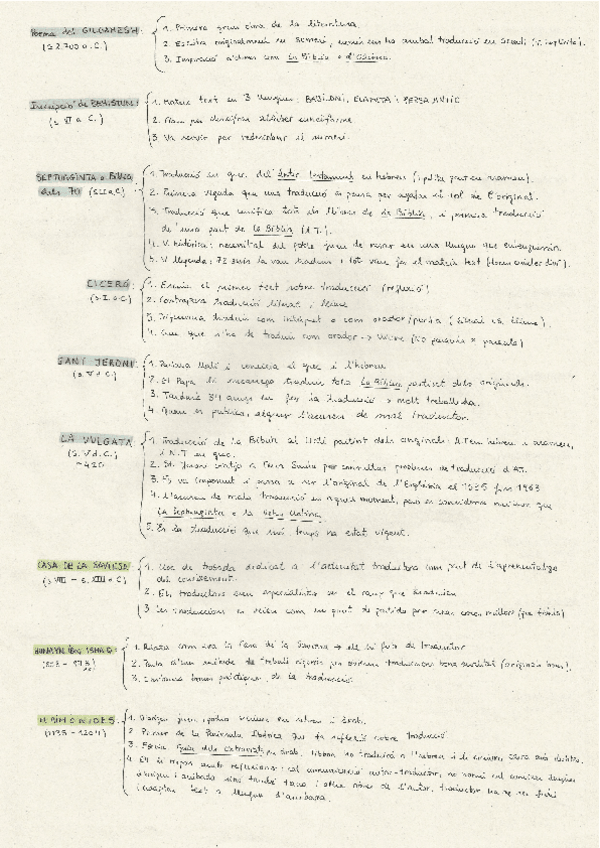 Poema del GILGAMESH
(s. 2.700 a.C.)
1. Primera gran obra de la literatura.
2. Escrita originalment en sumeri, només ens ha arribat traducció en accadi (s. implícita).
3. Inspiració d'altres com La Bíblia o d'Odissea.
Inscripció de BEHISTUN
(s. VI a.C.)
1. Mateix text en 3 llengües: BABILONI, ELAMITA i PERSA ANTIC
2. Clau per desxifrar alfabet cuneïforme
3. Va servir per redescobrir el sumeri.
SEPTUAGINTA o BÍBLIA
dels 70 (s. II a.C.)
1. Traducció en grec del Antic Testament en hebreu (i petita part en arameu).
2. Primera vegada que una traducció es passa per agafar el rol de l'original.
3. Traducció que unifica tots els llibres de la Bíblia, i primera traducció
de una part de la Bíblia (A.T.).
4. V. històrica: necessitat del poble jueu de resar en una llengua que entenguessin.
5. V. llegenda: 72 savis la van traduir i tot van fer el mateix text
CICERÓ
(s. I. a.C.)
1. Escriu el primer text sobre traducció (reflexió)
2. Contraposa traducció literal i lliure
3. Diferencia traduir com intèrpret o com orador/poeta (literal vs. lliure).
4. Creu que s'ha de traduir com orador -> lliure (no paraula x paraula)
SANT JERONI
(s. V d.C.)
1. Parlava llatí i coneixia el grec i l'hebreu
2. El Papa li encarrega traduir tota La Bíblia partint dels originals.
3. Tardarà anys en fer la traducció -> molt treballada.
4. Quan es publica, segueix l'acusen de mal traductor.
LA VULGATA
(s. V d.C.)
~420
1. Traducció de la Bíblia al llatí partint dels originals: A.T en hebreu i arameu,
i N.T en grec.
2. St. Jeroni viatja a Terra Santa per consultar problemes de traducció d'AT.
3. Es va imposant i passa a ser l'original de l'Església el 1535 fins 1963
4. L'acusen de mala traducció en aquell moment, però es considerava millor que
La Septuaginta o la Vetus Latina.
5. És la traducció que més temps ha estat vigent.
CASA DE LA SAVIESA
(s. VIII - s. XIII d.C)
1. Lloc de trobada dedicat a l'activitat traductora com part de l'aprenentatge
del coneixement.
2. Els traductors eren especialistes en el camp que traduïen
3. Les traduccions es veien com un punt de partida per crear coses millors
HUNAYN IBN ISHAQ
(808 - 873)
1. Relata com era la Casa de la Saviesa -> ell hi feia de traductor
2. Parla d'un mètode de treball rigorós per obtenir traduccions bona qualitat (originals bons).
3. bones pràctiques de la traducció
MAIMÒNIDES
(1135 - 1204)
1. D'origen jueu, podia escriure en hebreu i àrab.
2. Primer de la Península Ibèrica que fa reflexió sobre traducció
3. Escriu Guia dels extraviats en àrab. Tibbon ho traduirà a l'hebreu i li escriu